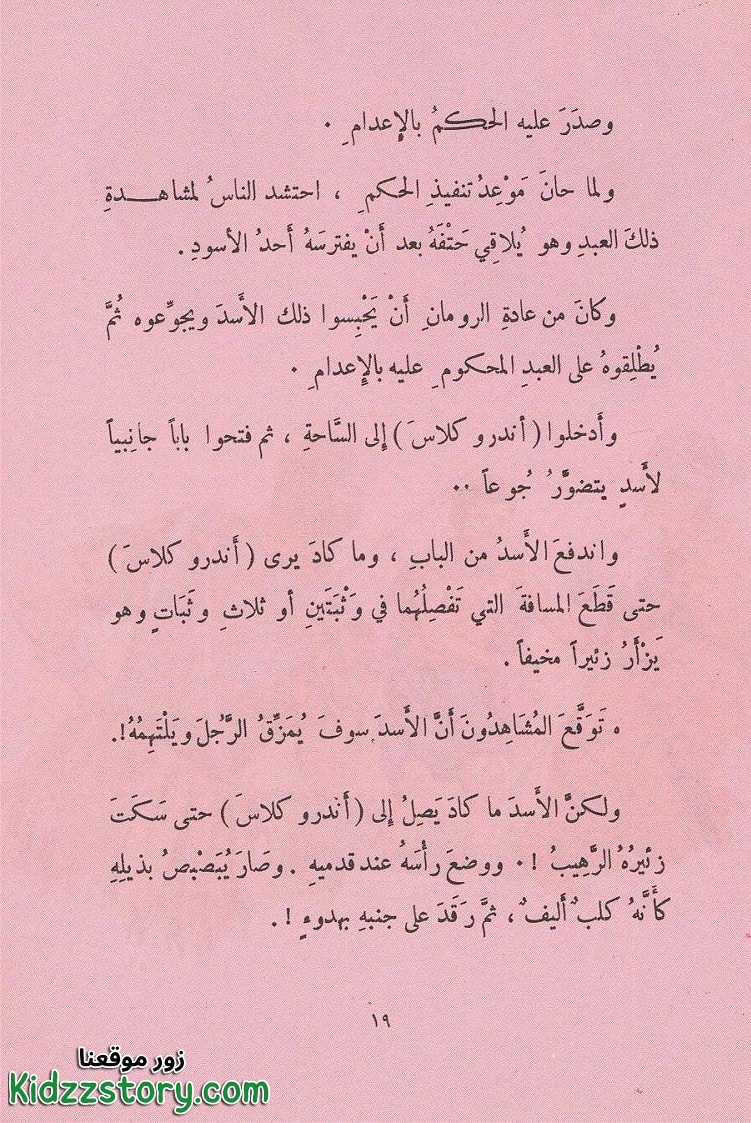 وصدَرَ عليه الحكمُ بالإعدامِ .
ولما حانَ مَوْعِدُ تنفيذِ الحكمِ ، احتشد الناسُ لمشاهدةِ
ذلكَ العبدِ وهو يُلاقِي حَتْفَهُ بعد أَنْ يفترسَهُ أَحدُ الأسودِ .
وكانَ من عادةِ الرومانِ أَنْ يَحْبِسوا ذلك الأَسدَ ويجوِّعوه ثُمَّ
يُطْلِقوهُ على العبدِ المحكومِ عليه بالإِعدامِ .
وأَدخلوا (أندروكلاسَ) إلى السَّاحةِ ، ثم فتحوا باباً جانِبياً
لأَسدٍ يتضوَّرُ جُوعاً ..
واندفعَ الأَسدُ من البابِ ، وما كادَ يرى (أَندروكلاسَ)
حتى قَطَعَ المسافةَ التي تَفْصِلُهُما في وَثْبَتَينِ أو ثلاثِ وثَبَاتٍ وهو
يَزْأَرُ زئيراً مخيفاً .
. تَوَقَّعَ المُشَاهِدُونَ أَنَّ الأَسدَ سوفَ يُمَزِّقُ الرَّجُلَ ويَلْتَهِمُهُ!.
ولكنَّ الأَسدَ ما كادَ يَصِلُ إلى (أندروكلاسَ) حتى سَكَتَ
زئيرُهُ الرَّهيبُ !. ووضعَ رأْسَهُ عند قدميهِ . وصَارَ يُبَصْبِصُ بذيلِهِ
كأَنَّهُ كلبٌ أَليفٌ ، ثمَّ رَقَدَ على جنبهِ بهدوءٍ !.
١٩
زور موقعنا
Kidzzstory.com